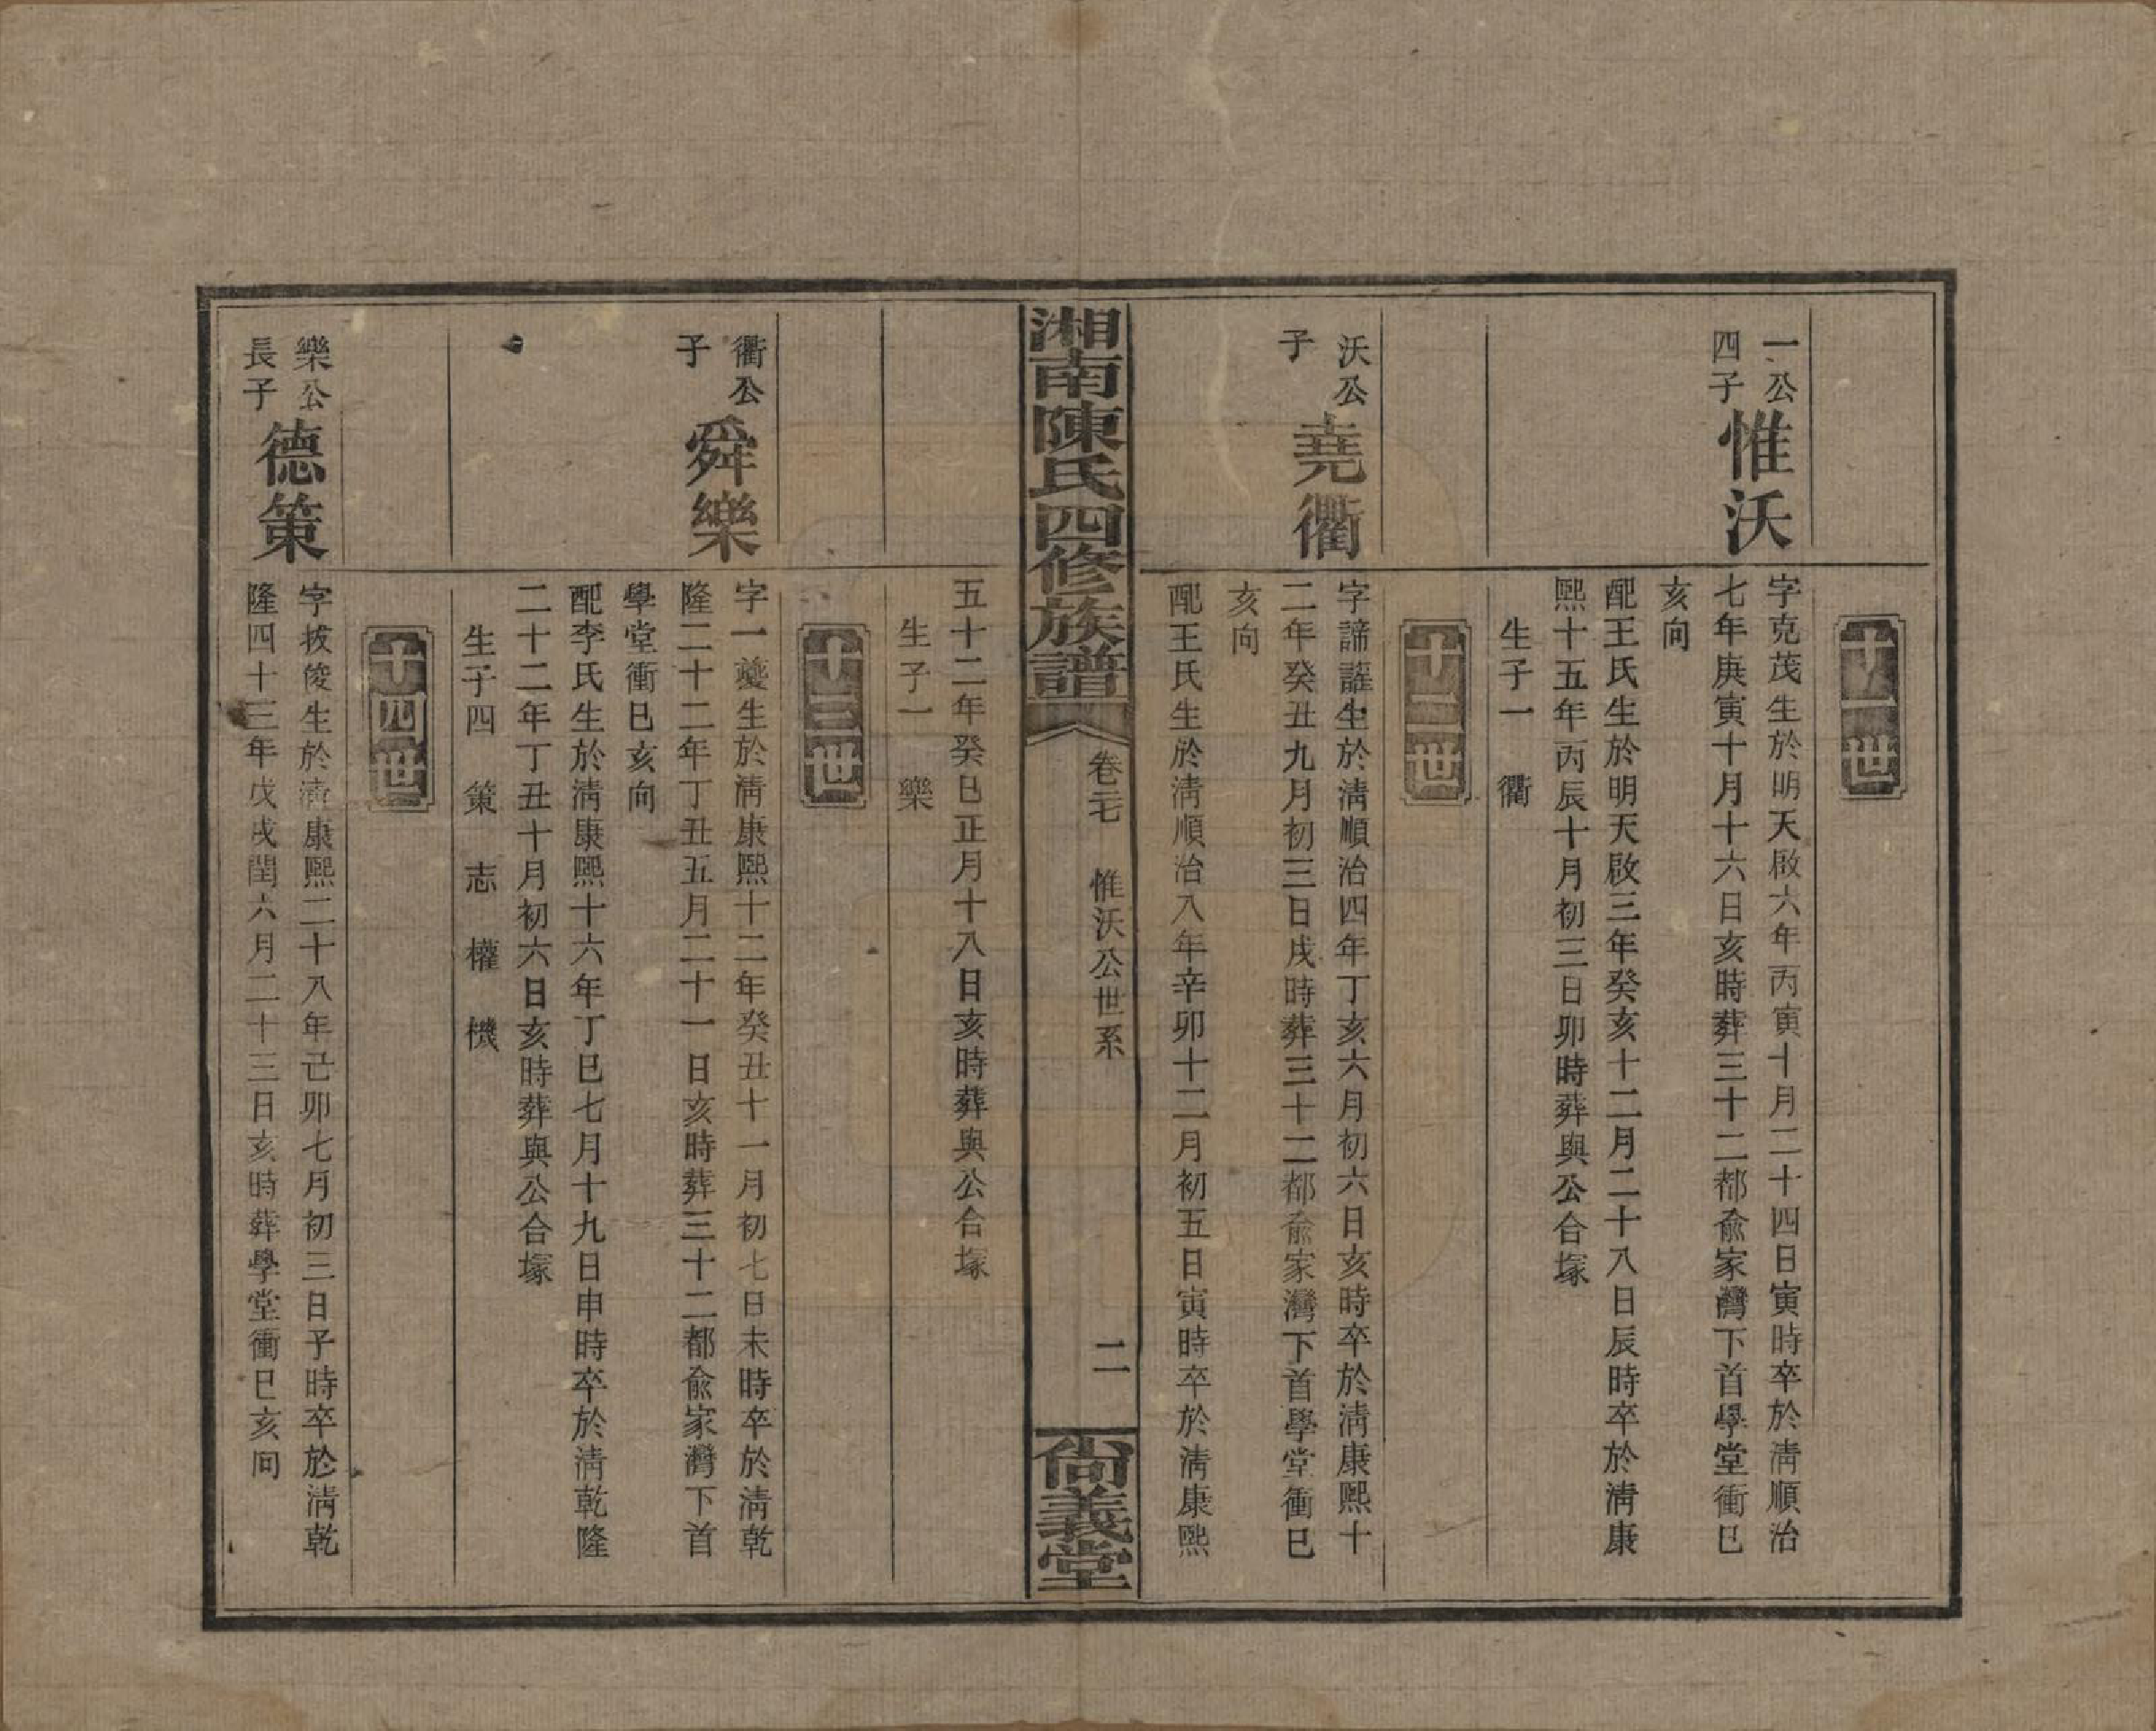 十一世
一公
四子
惟沃
字克茂生於明天啟六年丙寅十月二十四日寅時卒於淸順治
七年庚寅十月十六日亥時葬三十二都兪家灣下首學堂衝巳
亥向
配王氏生於明天啟三年癸亥十二月二十八日辰時卒於淸康
熙十五年丙辰十月初三日卯時葬與公合塚
生子一 衢
十二世
沃公
子
堯衢
字諦讙生於淸順治四年丁亥六月初六日亥時卒於淸康熙十
二年癸丑九月初三日戌時葬三十二都兪家灣下首學堂衝巳
亥向
配王氏生於淸順治八年辛卯十二月初五日寅時卒於淸康熙
湘南陳氏四修族譜
卷二七 惟沃公世系
二
尙義堂
五十二年癸巳正月十八日亥時葬與公合塚
生子一 樂
十三世
衢公
子
舜樂
字一夔生於淸康熙十二年癸丑十一月初七日未時卒於淸乾
隆二十二年丁丑五月二十一日亥時葬三十二都兪家灣下首
學堂衝巳亥向
配李氏生於淸康熙十六年丁巳七月十九日申時卒於淸乾隆
二十二年丁丑十月初六日亥時葬與公合塚
生子四 策 志 權 機
十四世
樂公
長子
德策
字拔俊生於淸康熙二十八年己卯七月初三日子時卒於淸乾
隆四十三年戊戌閏六月二十三日亥時葬學堂衝巳亥向